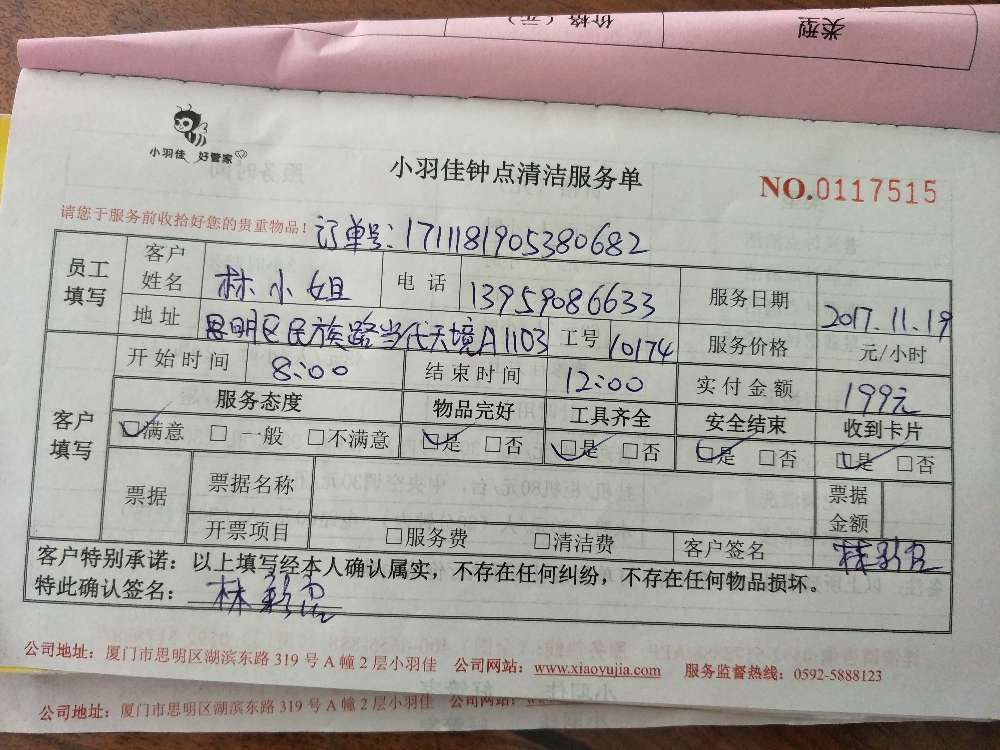 类型
价格（元）
小羽佳 好管家
小羽佳钟点清洁服务单
NO.0117515
请您于服务前收拾好您的贵重物品！ 订单号：1711181905380682
员工填写 客户姓名 林小姐 电 话 13959086633 服务日期 2017.11.19
地 址 思明区民族路当代天境A1103 工号 10174 服务价格 元/小时
客户填写 开始时间 8:00 结束时间 12:00 实付金额 199元
服务态度 物品完好 工具齐全 安全结束 收到卡片
☑满意 □一般 □不满意 ☑是 □否 ☑是 □否 ☑是 □否 ☑是 □否
票据 票据名称 票据金额
开票项目 □服务费 □清洁费 客户签名
客户特别承诺：以上填写经本人确认属实，不存在任何纠纷，不存在任何物品损坏。
特此确认签名：
公司地址：厦门市思明区湖滨东路 319 号 A 幢 2 层小羽佳 公司网站：www.xiaoyujia.com 服务监督热线：0592-5888123
公司地址：厦门市思明区湖滨东路 319 号 A 幢 2 层小羽佳 公司网站：